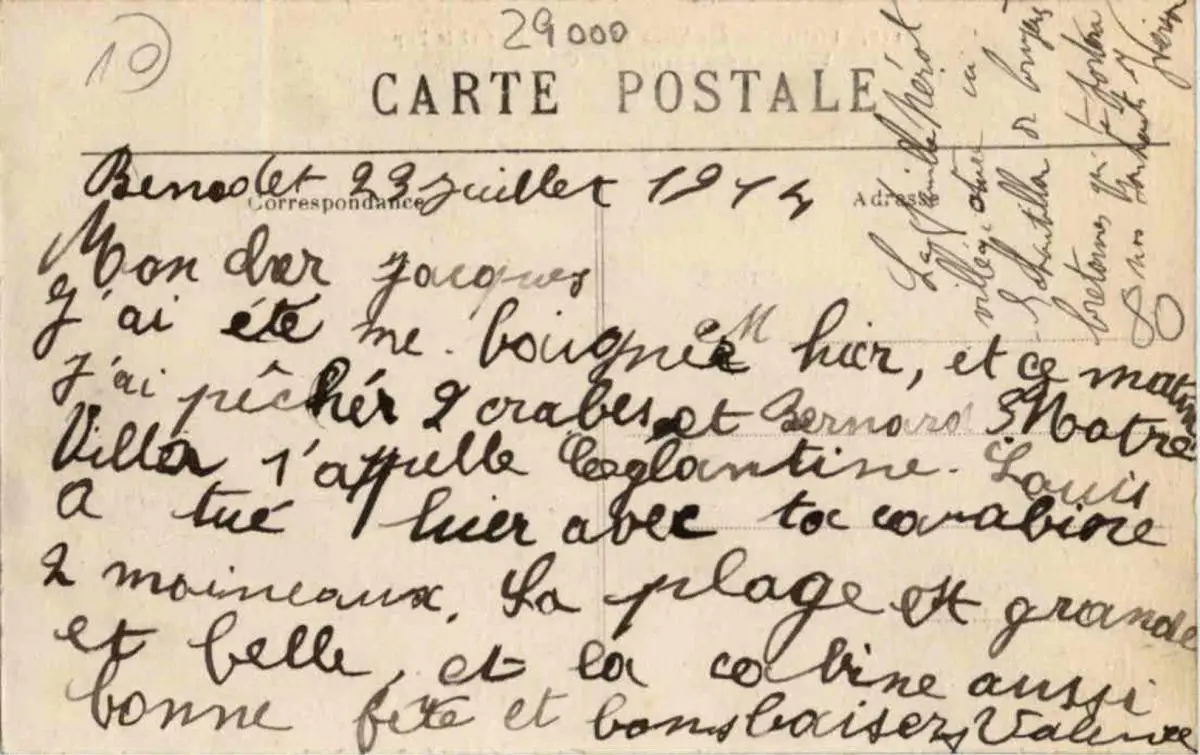 10
29000
CARTE POSTALE
Correspondance
Adresse
Benodet 23 juillet 1914
Mon cher Jacques
J'ai été me baigner hier, et ce matin
j'ai pêchér 2 crabes et Bernard 3 Notre
Villa s'appelle Eglantine. Louis
a tué hier avec ta carabine
2 moineaux. La plage est grande
et belle, et la cabine aussi
bonne fête et bons baisers
La famille
de
bretonnes qui te